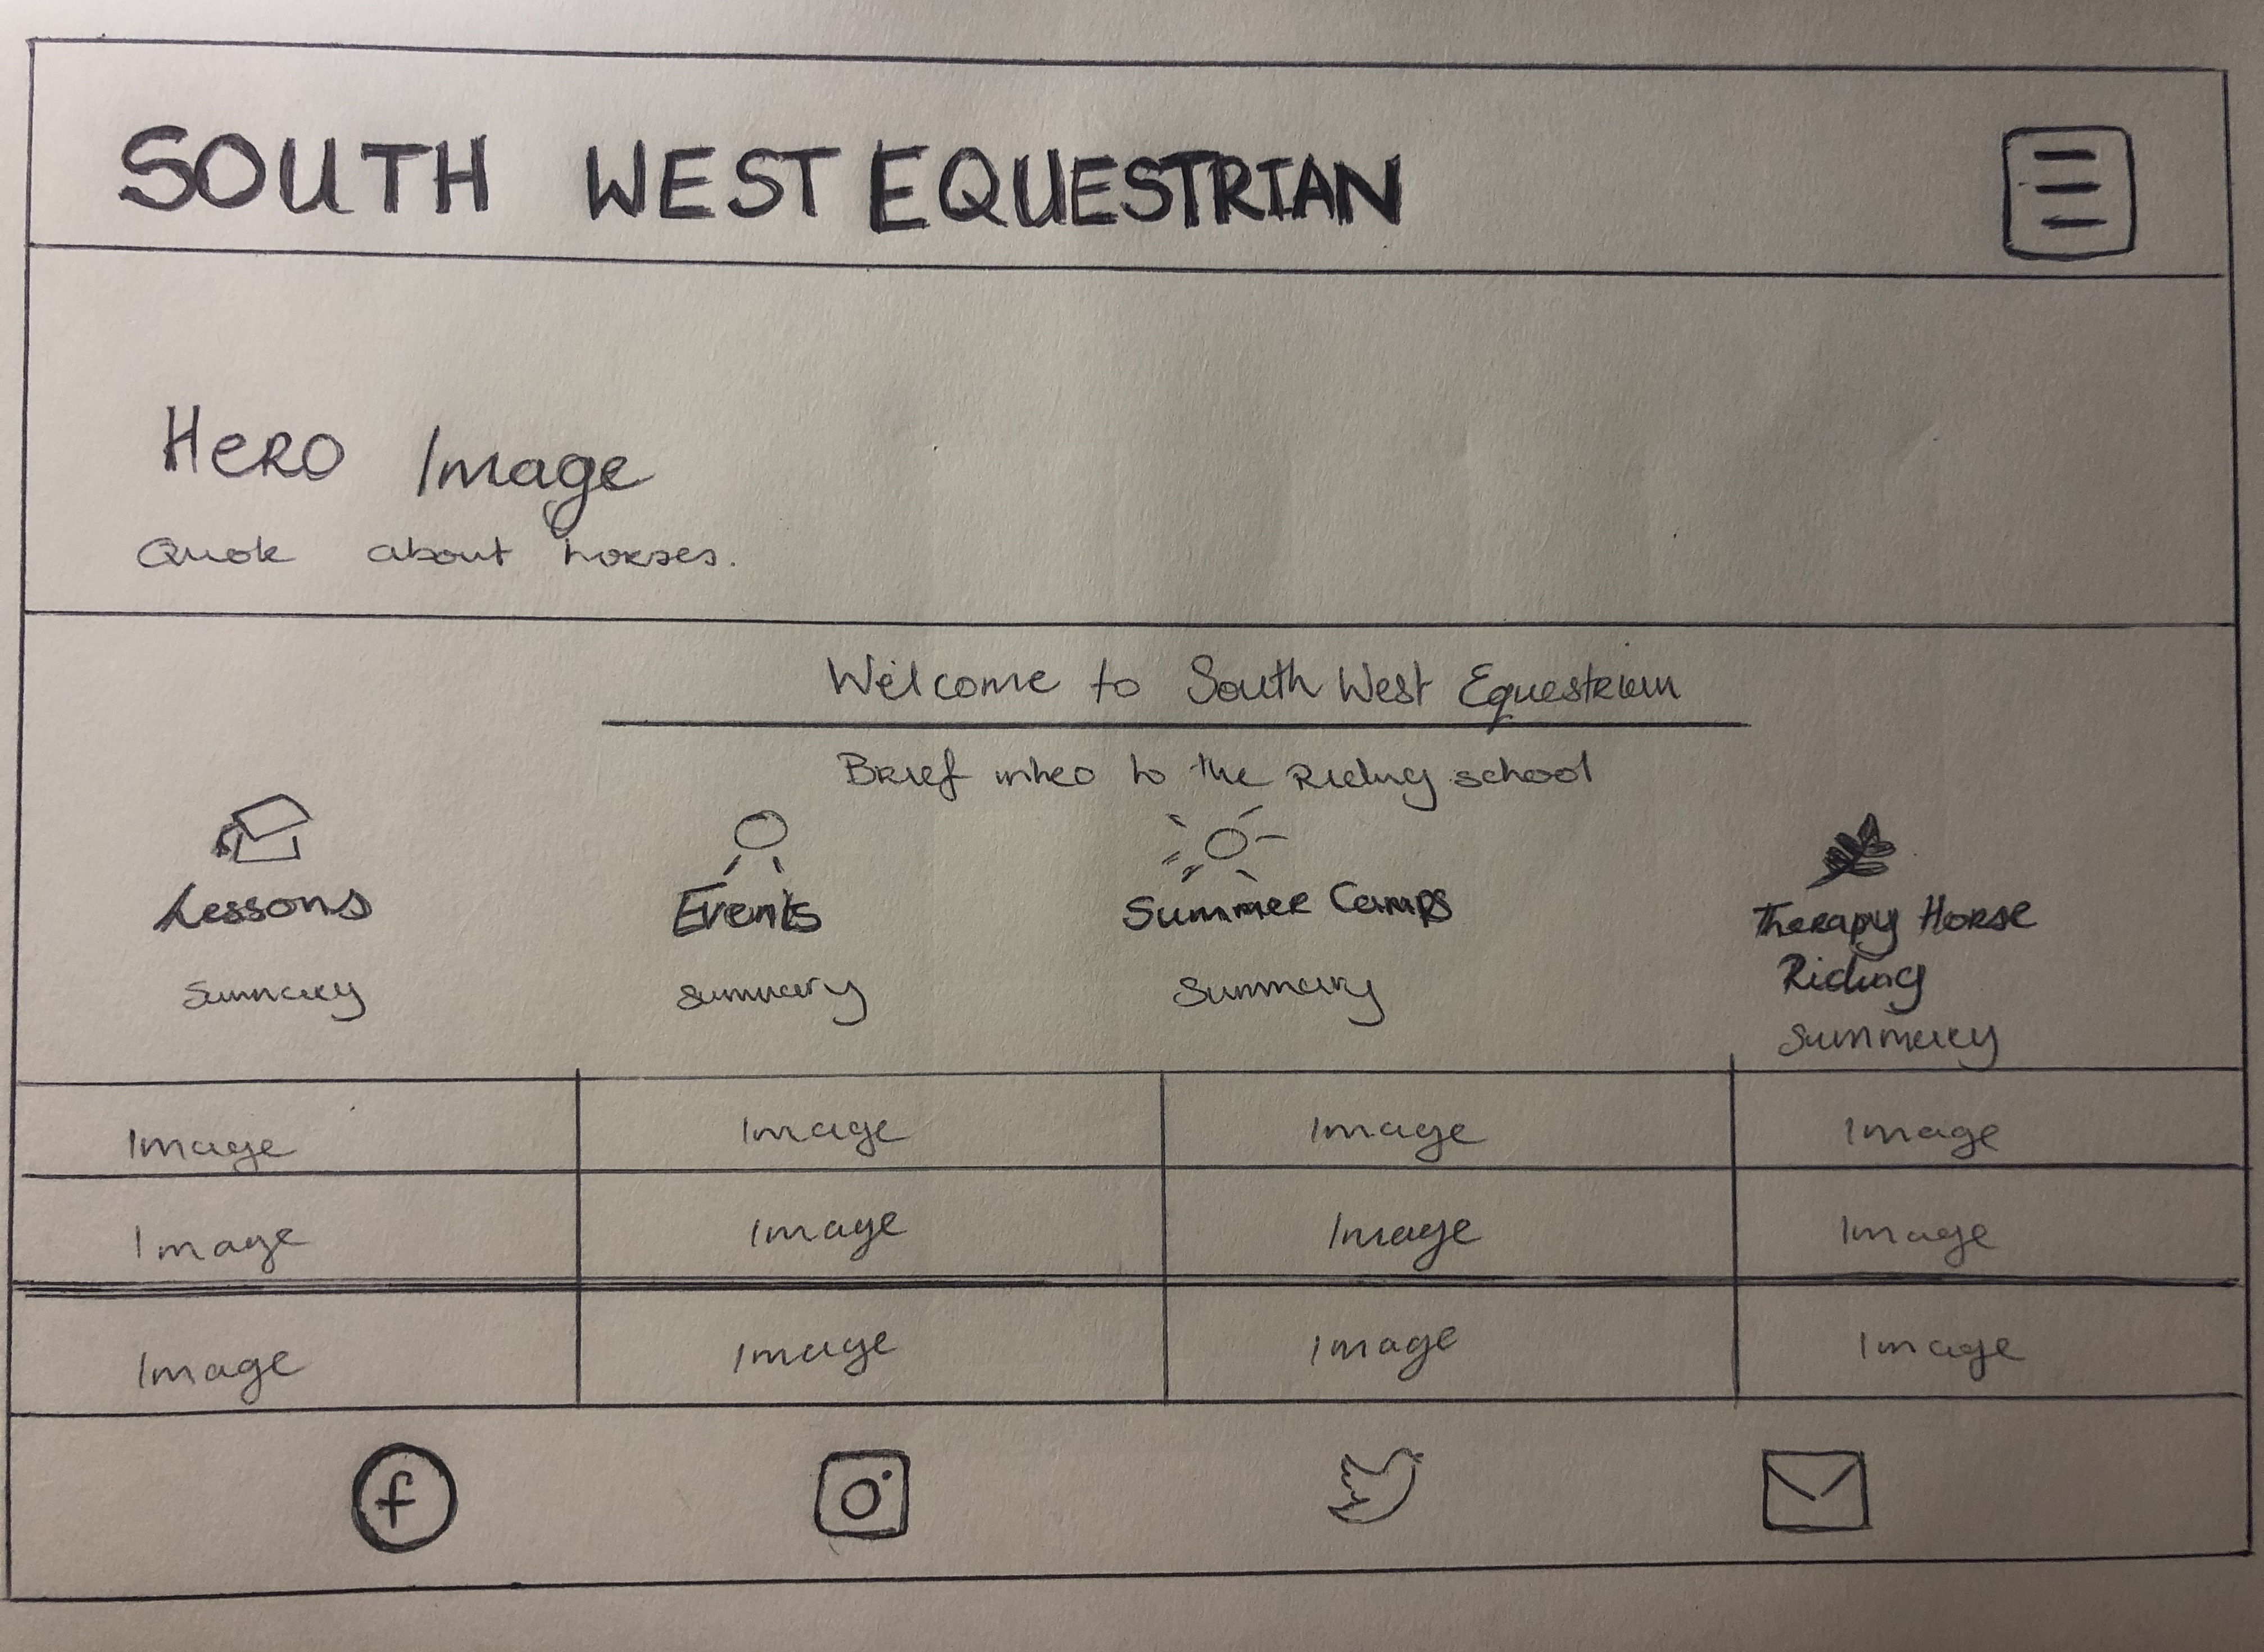 SOUTH WEST EQUESTRIAN
Hero Image
Quote about horses.
Welcome to South West Equestrian
Brief intro to the Riding school
Lessons Events Summer Camps Therapy Horse
Riding
Summary Summary Summary Summary
Image Image Image Image
Image Image Image Image
Image Image Image Image
f